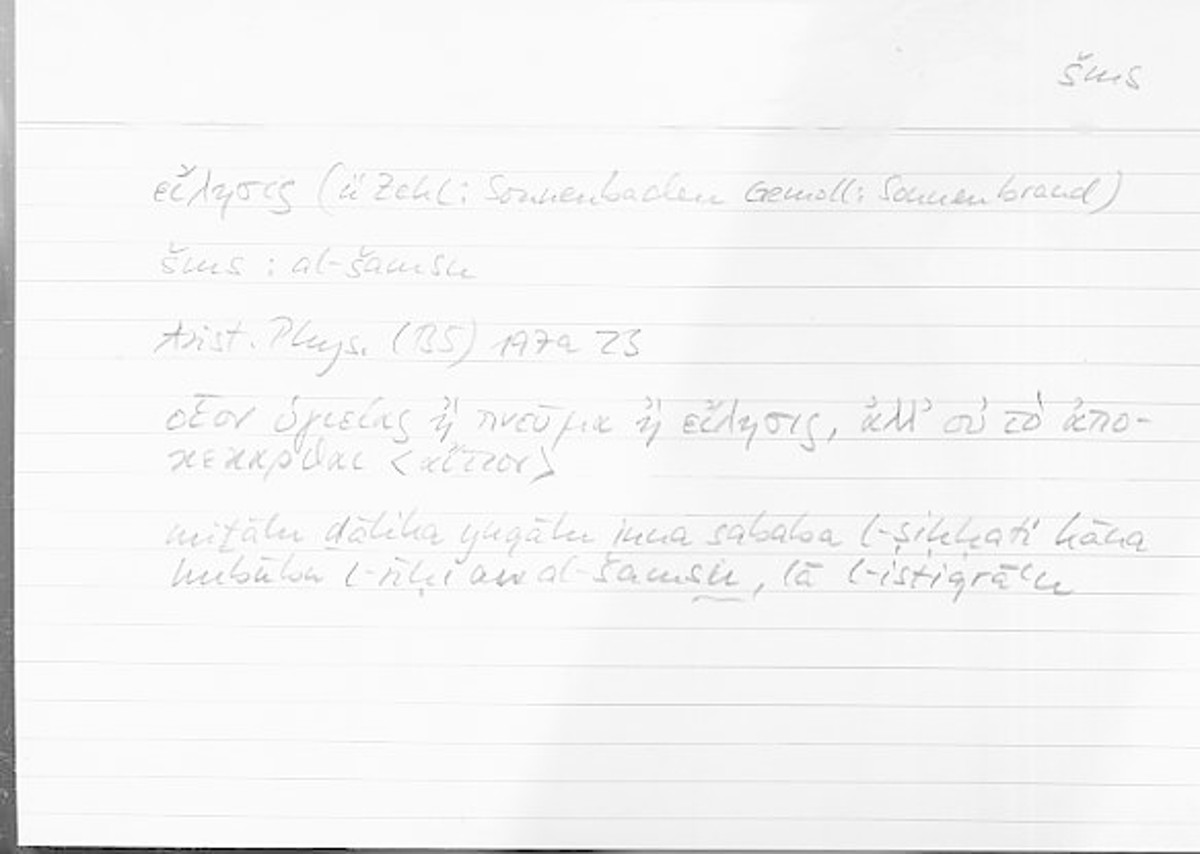 šms
εἵλησις (ü Zekl: Sonnenbaden Gemoll: Sonnenbrand)
šms : al-šamsu
Arist. Phys. (B5) 197a 23
οἷον ὑγιείας ἢ πνεῦμα ἢ εἵλησις, ἀλλ' οὐ τὸ ἀπο-
κεκάρθαι <αἴτιον>
miṯālu ḏālika yuqālu inna sababa l-ṣiḥḥati kāna
hubūbu l-rīḥi aw al-šamsu, lā l-istiqrāʿu